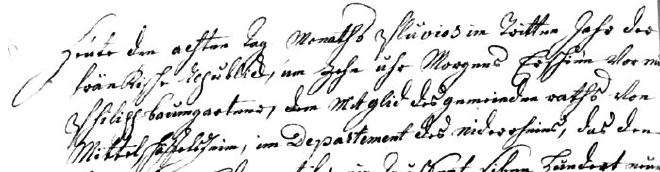 Heute den achten Tag Monaths Pluvios im Dritten Jahr der
fränkische Republick, um Zehn uhr Morgens Erschien vor mir
Philipp baumgartner, dem Mitglid des gemeinden raths von
Mittel, im Departement des niderrheins, das den
Hundert neun